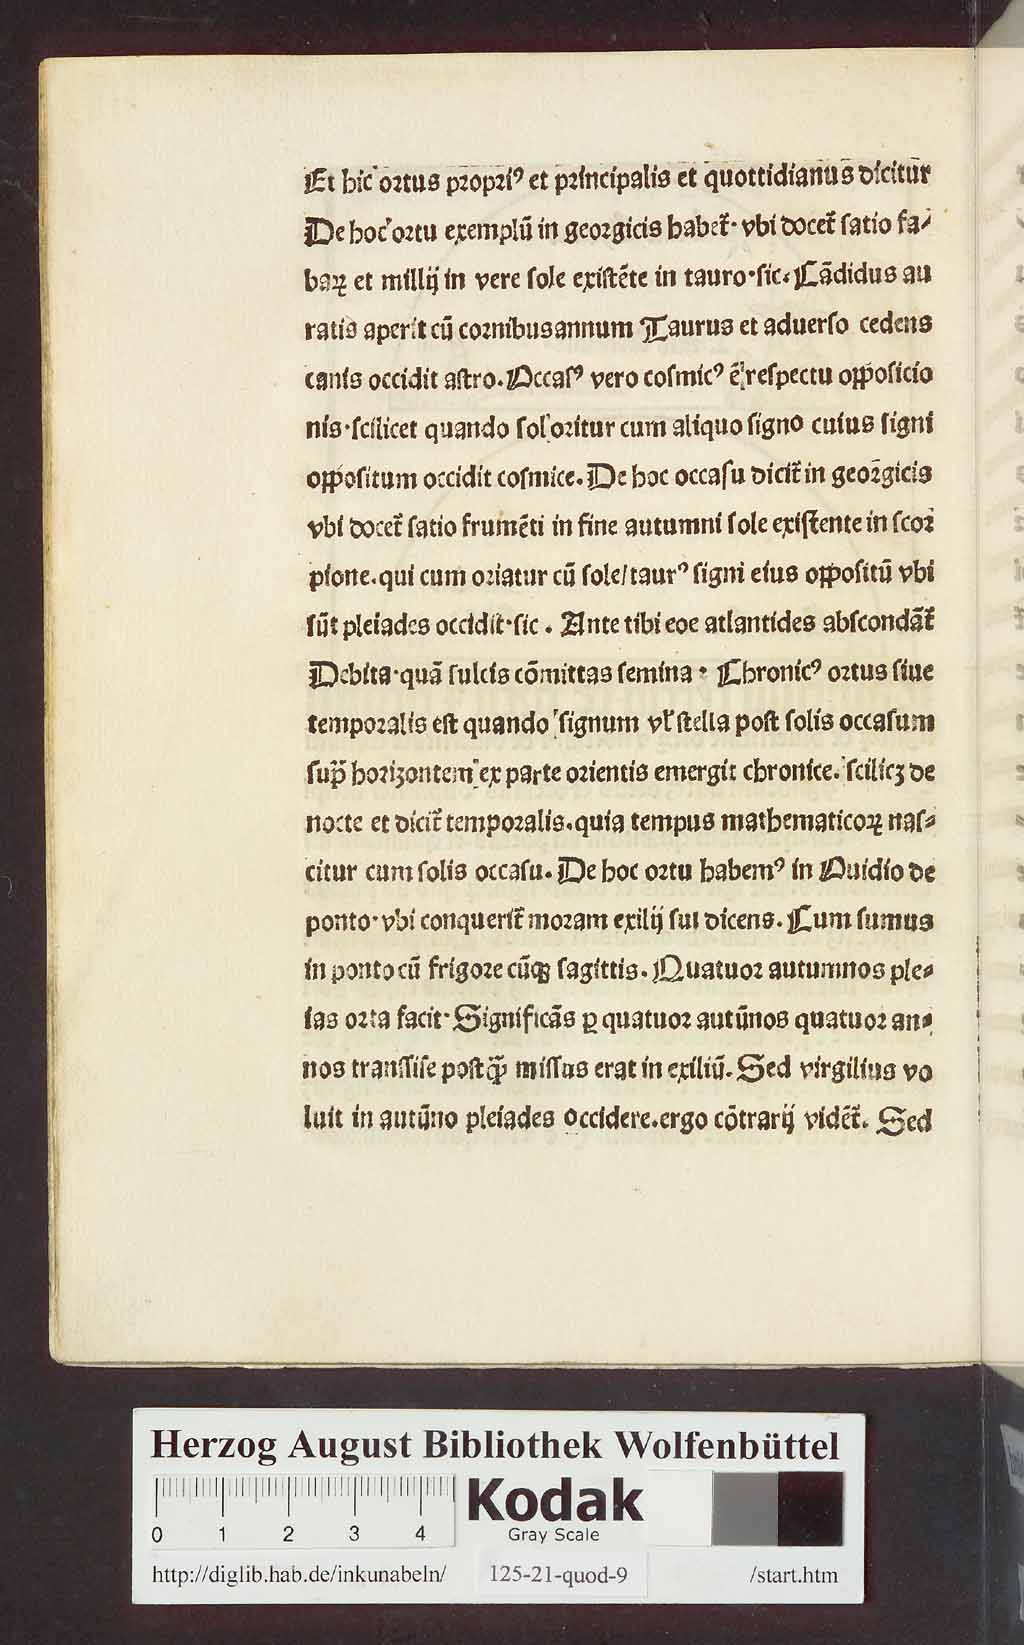 Et hic ortus propriꝰ et principalis et quottidianus dicitur
De hoc ortu exemplū in georgicis habet᷑· vbi docet᷑ ſatio fa⸗
baꝝ et millij in vere ſole exiſtēte in tauro·ſic. Cādidus au
ratis aperit cū cornibus annum Taurus et aduerſo cedens
canis occidit aſtro. Occaſꝰ vero coſmicꝰ ē reſpectu oppoſicio
nis·ſcilicet quando ſol oritur cum aliquo ſigno cuius ſigni
oppoſitum occidit coſmice. De hoc occaſu dicit᷑ in georgicis
vbi docet᷑ ſatio frumēti in fine autumni ſole exiſtente in ſcor
pione. qui cum oriatur cū ſole/ taurꝰ ſigni eius oppoſitū vbi
ſūt pleiades occidit·ſic. Ante tibi eoe atlantides abſcondāt᷑
Debita·quā ſulcis cōmittas ſemina· Chronicꝰ ortus ſiue
temporalis eſt quando ſignum vꝉ ſtella poſt ſolis occaſum
ſup̄ horizontem ex parte orientis emergit chronice. ſcilicꝫ de
nocte et dicit᷑ temporalis. quia tempus mathematicoꝝ naſ⸗
citur cum ſolis occaſu. De hoc ortu habemꝰ in Ouidio de
ponto·vbi conquerit᷑ moram exilij ſui dicens. Cum ſumus
in ponto cū frigore cūqꝫ ſagittis. Quatuor autumnos ple⸗
ias orta facit· Significās ꝑ quatuor autūnos quatuor an⸗
nos tranſſiſe poſtq̄ miſſus erat in exiliū. Sed virgilius vo
luit in autūno pleiades occidere. ergo cōtrarij vidēt᷑. Sed
Herzog August Bibliothek Wolfenbüttel
0 1 2 3 4
Kodak
Gray Scale
http://diglib.hab.de/inkunabeln/ 125-21-quod-9 /start.htm